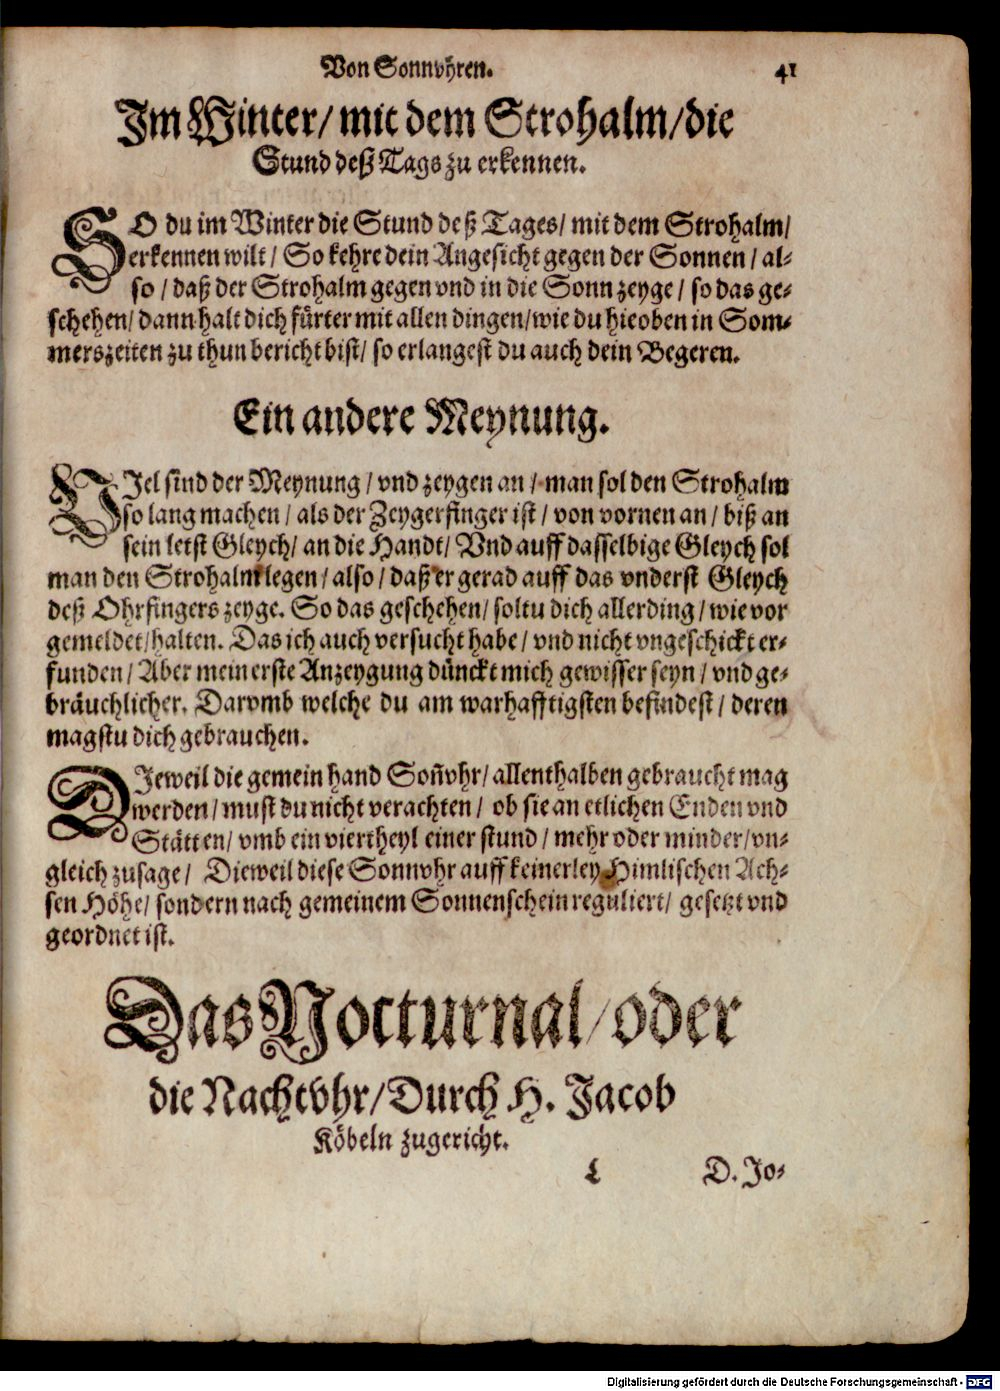 Von Sonnvhren. 41
Im Winter/ mit dem Strohalm/die
Stund deß Tags zu erkennen.
SO du im Winter die Stund deß Tages/ mit dem Strohalm/
erkennen wilt/ So kehre dein Angesicht gegen der Sonnen/ al-
so/ daß der Strohalm gegen vnd in die Sonn zeyge/ so das ge-
schehen/ dann halt dich fürter mit allen dingen/wie du hieoben in Som-
merszeiten zu thun bericht bist/ so erlangest du auch dein Begeren.
Ein andere Meynung.
VIel sind der Meynung/ vnd zeygen an/ man sol den Strohalm
so lang machen/ als der Zeygerfinger ist/ von vornen an/ biß an
sein letst Gleych/ an die Handt/ Vnd auff dasselbige Gleych sol
man den Strohalm legen/ also/ daß er gerad auff das vnderst Gleych
deß Ohrfingers zeyge. So das geschehen/ soltu dich allerding/ wie vor
gemeldet/halten. Das ich auch versucht habe/ vnd nicht vngeschickt er-
funden/ Aber mein erste Anzeygung dünckt mich gewisser seyn/ vnd ge-
bräuchlicher. Darvmb welche du am warhafftigsten befindest/ deren
magstu dich gebrauchen.
DJeweil die gemein hand Soñvhr/ allenthalben gebraucht mag
werden/ must du nicht verachten/ ob sie an etlichen Enden vnd
Stätten/ vmb ein viertheyl einer stund/ mehr oder minder/vn-
gleich zusage/ Dieweil diese Sonnvhr auff keinerley Himlischen Ach-
sen Höhe/ sondern nach gemeinem Sonnenschein reguliert/ gesetzt vnd
geordnet ist.
Das Nocturnal/oder
die Nachtvhr/Durch H. Jacob
Köbeln zugericht.
L D. Jo-
Digitalisierung gefördert durch die Deutsche Forschungsgemeinschaft - DFG